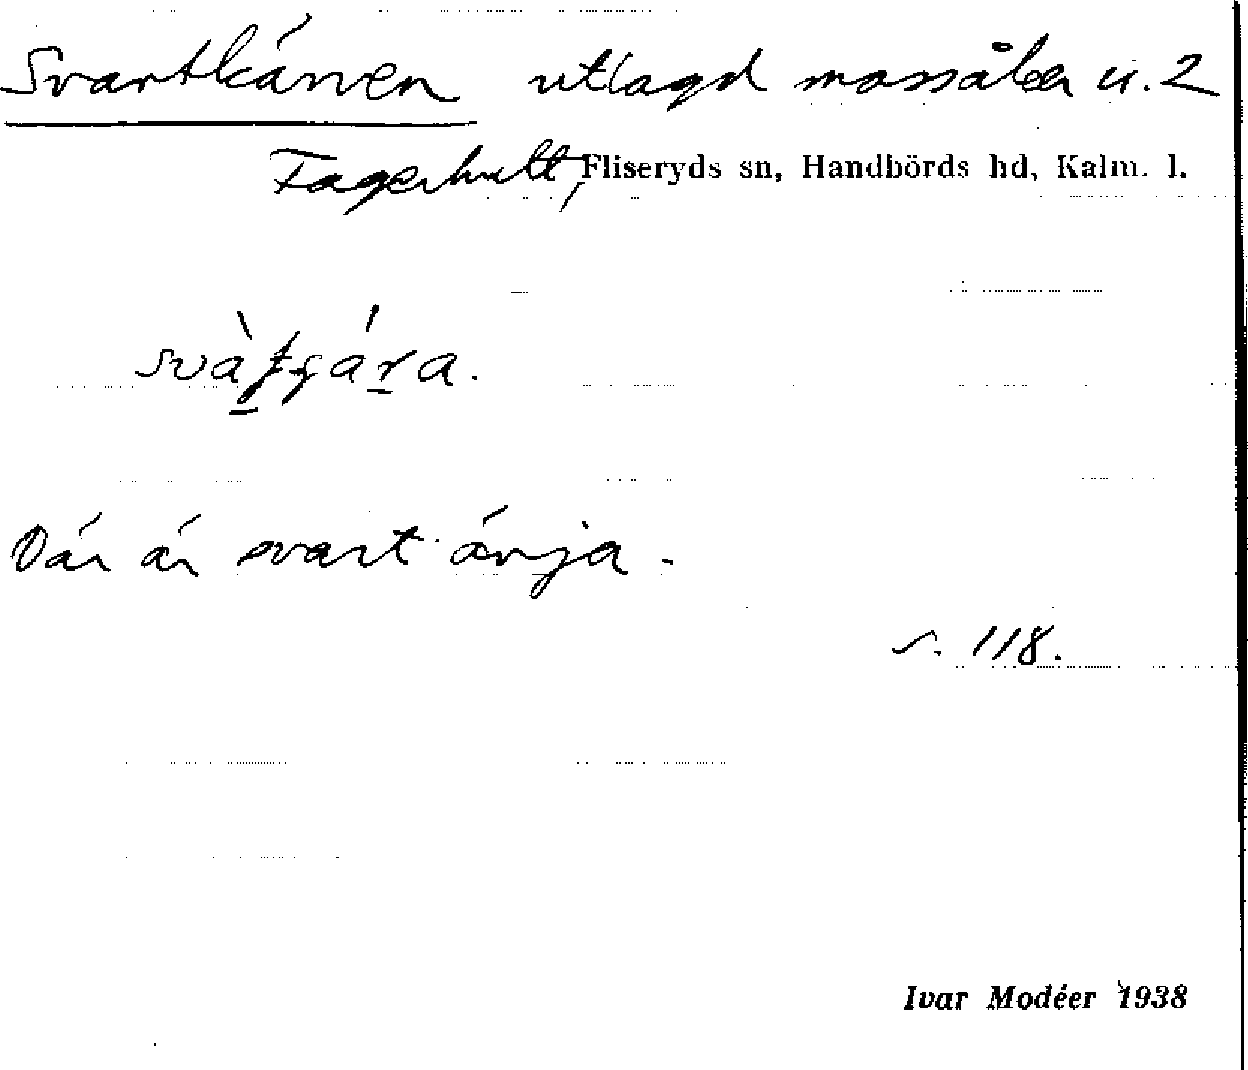 Svartkärren utlagd mossåker u. 2
Fagerhult, Fliseryds sn, Handbörds hd, Kalm. l.
Där är svart ävja.
s. 118.
Ivar Modéer 1938